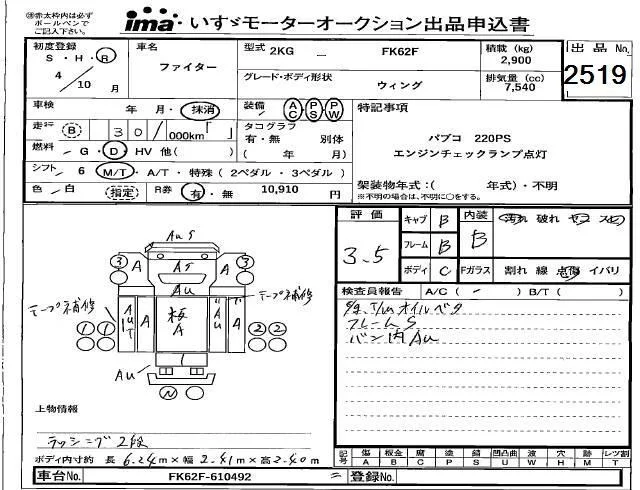 ㊟赤太枠内は必ず
ボールペンで
ご記入下さい。
ima いすゞモーターオークション出品申込書
初度登録 S・H・R
4 / 10 月
車名 ファイター
型式 2KG － FK62F
グレード・ボディ形状 ウィング
積載 (kg) 2,900
排気量 (cc) 7,540
出品 No. 2519
車検 年・月・抹消
走行 B 30/000km「 」
燃料 ・G・D HV 他( )
シフト 6 M/T・A/T・特殊(2ペダル・3ペダル)
色 白 指定 R券 有・無 10,910 円
装備 AC PS PW
タコグラフ 有・無 別体
( 年 月)
特記事項
パブコ 220PS
エンジンチェックランプ点灯
架装物年式:( 年式)・不明
※不明の場合は、不明に○をする。
評価 3.5
キャブ B
フレーム B
ボディ C
内装 B
汚れ 破れ ヤコ スレ
Fガラス 割れ 線 点傷 イバリ
検査員報告 A/C( - ) B/T( )
T/M オイルベタ
フレームS
バン内Au
AuS
3 A AT A 3
Au
テープ補修 テープ補修
1 1 AuT A 板A Au A 2 2
Au
N
上物情報
ラッシング2段
ボディ内寸約 長 6.24m × 幅 2.41m × 高 2.40m
記号 傷A 板金B 腐C 塗P 錆S 凹凸曲U 波W 穴H 跡M レツ割T
車台No. FK62F-610492 = 登録No.